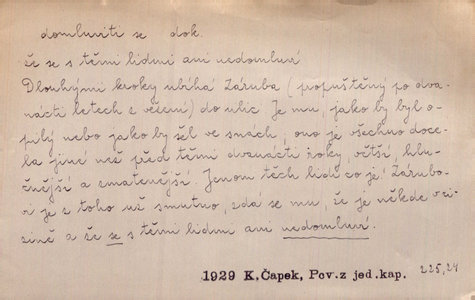 domluviti se dok.
že se s těmi lidmi ani nedomluví
Dlouhými kroky ubíhá Záruba (propuštěný po dva-
nácti letech z vězení) do ulic. Je mu, jako by byl o-
pilý nebo jako by šel ve snách; ono je všechno doce-
la jiné než před těmi dvanácti roky, větší, hlu-
čnější a zmatenější. Jenom těch lidí co je! Zárubo-
vi je z toho už smutno, zdá se mu, že je někde v ci-
zině a že se s těmi lidmi ani nedomluví.
1929 K.Čapek, Pov.z jed.kap. 225,24